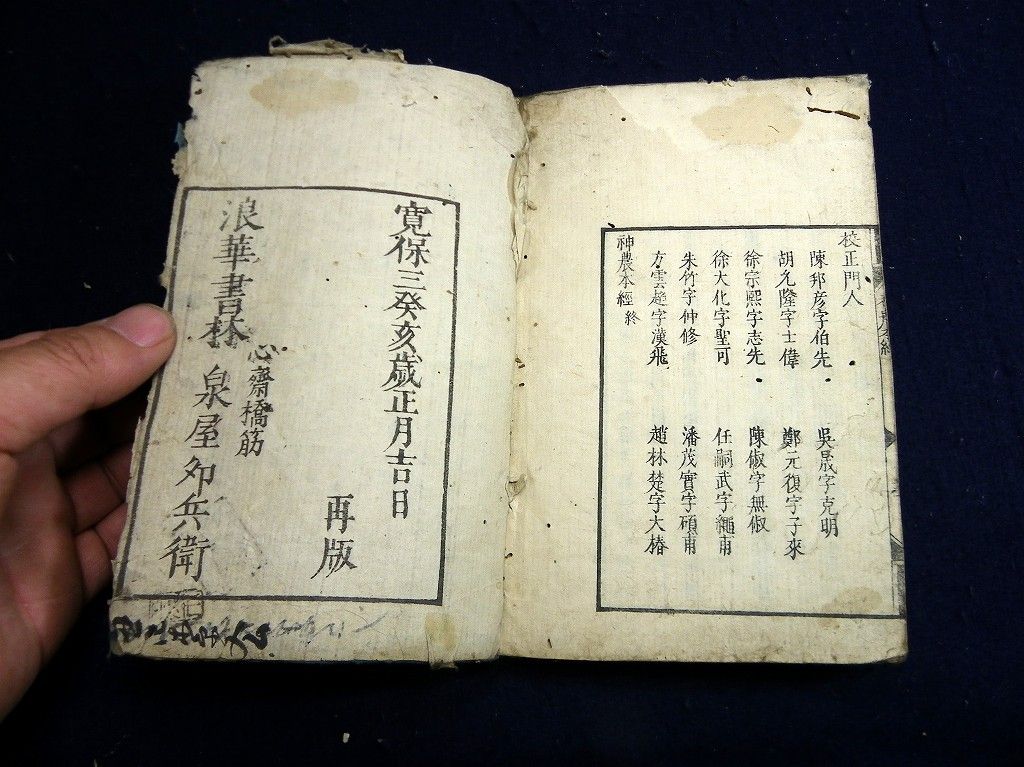 校正門人
陳邦彦字伯先 吳晟字克明
胡允隆字士偉 鄭元復字子來
徐宗熙字志先 陳俶字無俶
徐大化字聖可 任嗣武字繩甫
朱竹字仲修 潘茂實字碩甫
方雲趨字漢飛 趙林楚字大椿
神農本經終
寛保三癸亥歳正月吉日
再版
心齋橋筋
浪華書林 泉屋卯兵衛